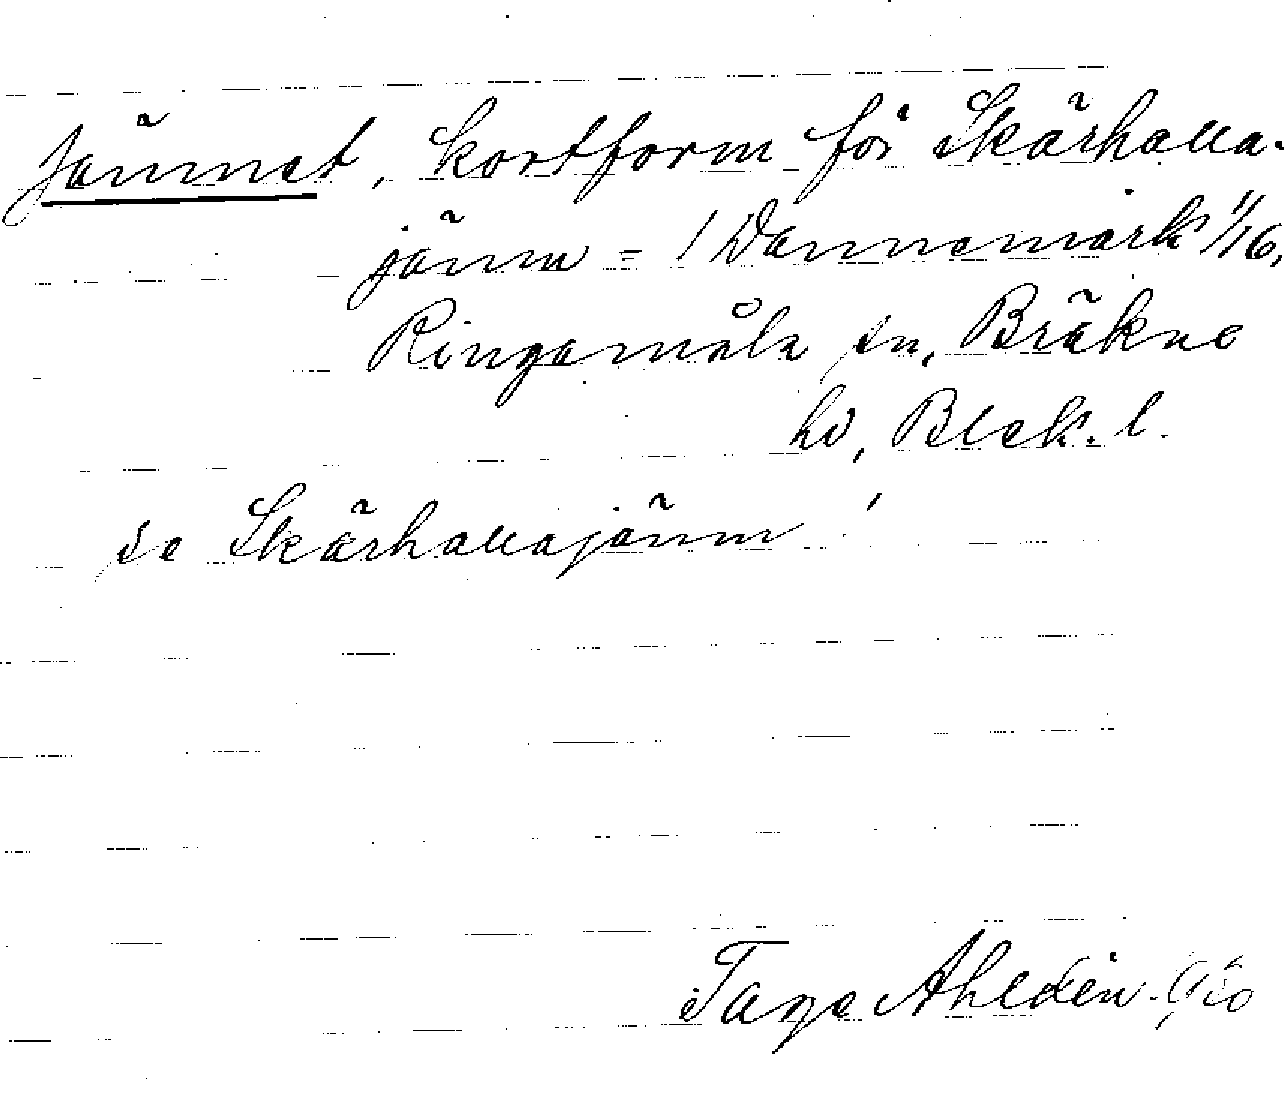 Jämnet, kortform för Skärhalla-
jämn = / Dannemark 1/16,
Ringamåla sn, Bräkne
hd, Blek. l.
se Skärhallajämn!
Tage Ahldén.